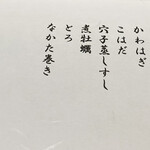 かわはぎ
こはだ
穴子蒸しすし
煮牡蠣
とろ
なかた巻き